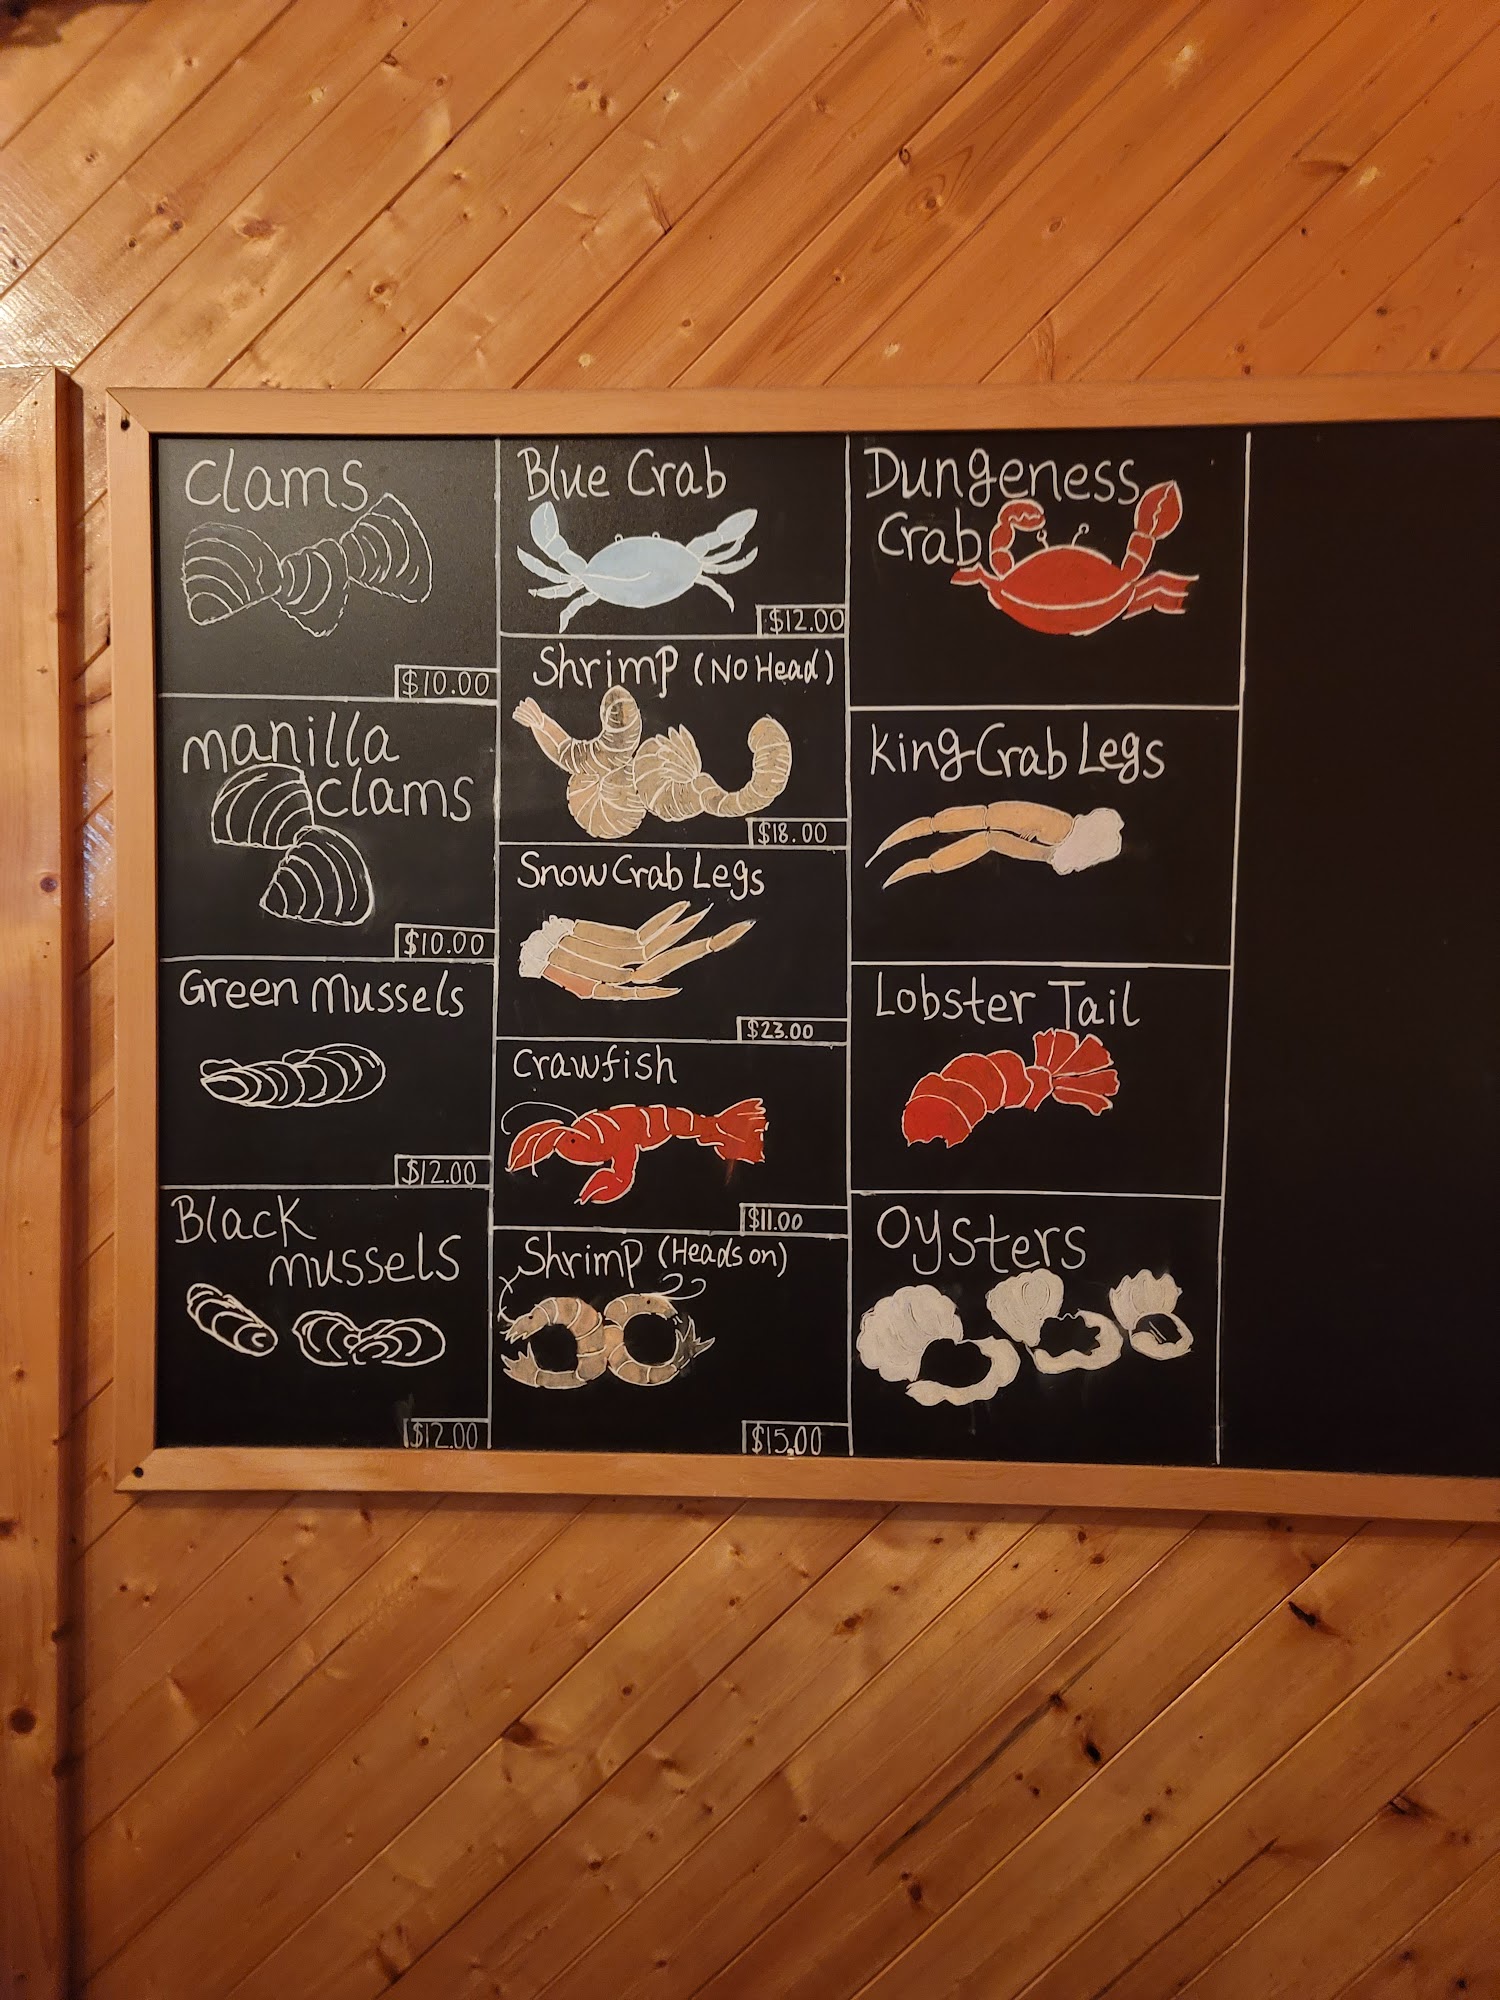 Clams
$10.00
manilla
clams
$10.00
Green Mussels
$12.00
Black
mussels
$12.00
Blue Crab
$12.00
Shrimp (No Head)
$18.00
Snow Crab Legs
$23.00
Crawfish
$11.00
Shrimp (Heads on)
$15.00
Dungeness
Crab
King Crab Legs
Lobster Tail
Oysters